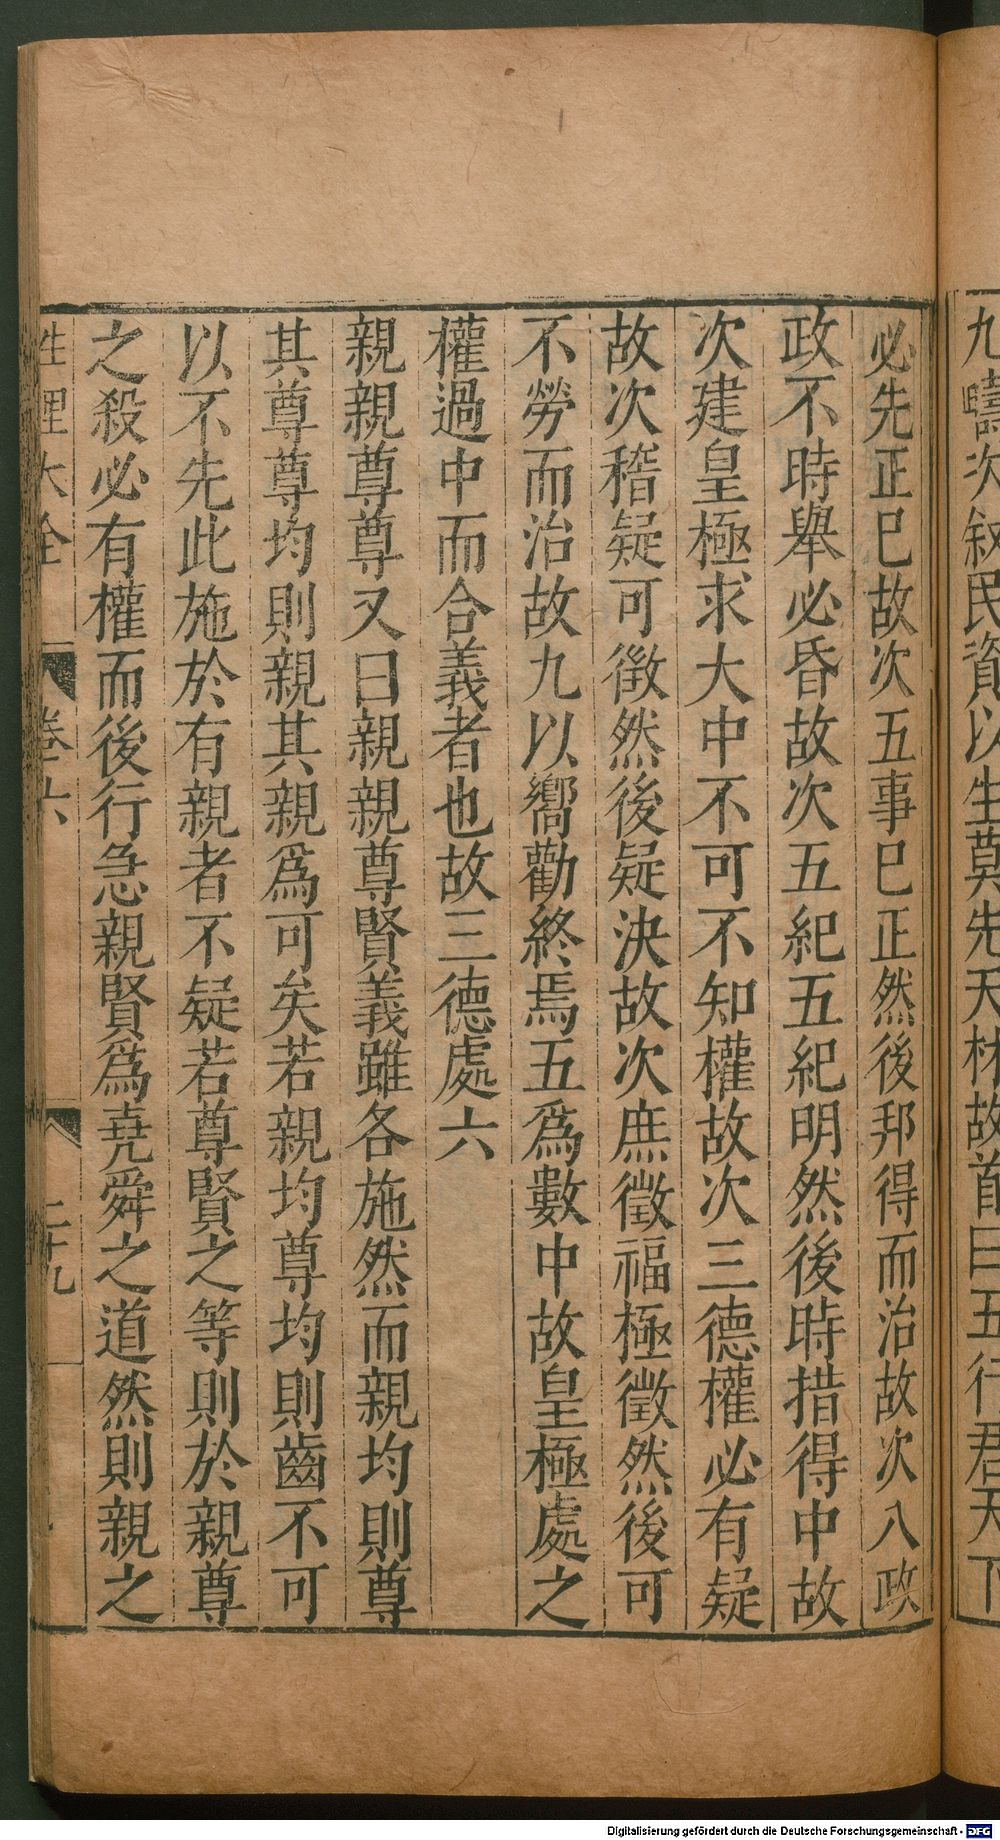 九疇次敘民資以生莫先天材故首曰五行君天下
必先正已故次五事已正然後邦得而治故次八政
政不時舉必昏故次五紀五紀明然後時措得中故
次建皇極求大中不可不知權故次三德權必有疑
故次稽疑可徵然後疑決故次庶徵福極徵然後可
不勞而治故九以嚮勸終焉五爲數中故皇極處之
權過中而合義者也故三德處六
親親尊尊又曰親親尊賢義雖各施然而親均則尊
其尊尊均則親其親爲可矣若親均尊均則齒不可
以不先此施於有親者不疑若尊賢之等則於親尊
之殺必有權而後行急親賢爲堯舜之道然則親之
性理大全 卷六 二十九
Digitalisierung gefördert durch die Deutsche Forschungsgemeinschaft - DFG